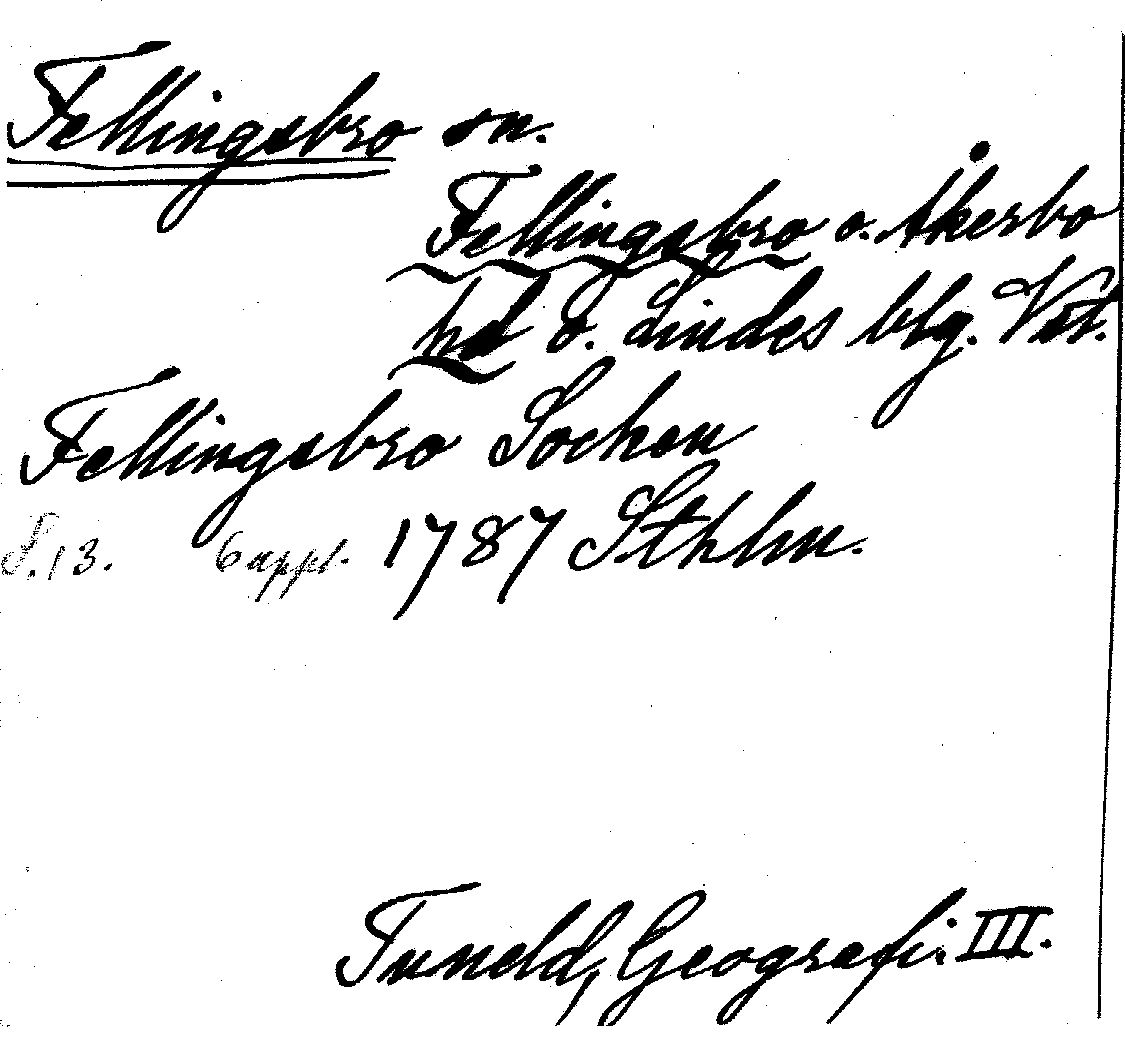 Fellingsbro sn.
Fellingsbro o. Åkerbo
hd o. Lindes blg. Vstm.
Fellingsbro Socken
S. 13. 6 uppl. 1787 Sthlm.
Tuneld, Geografi III.